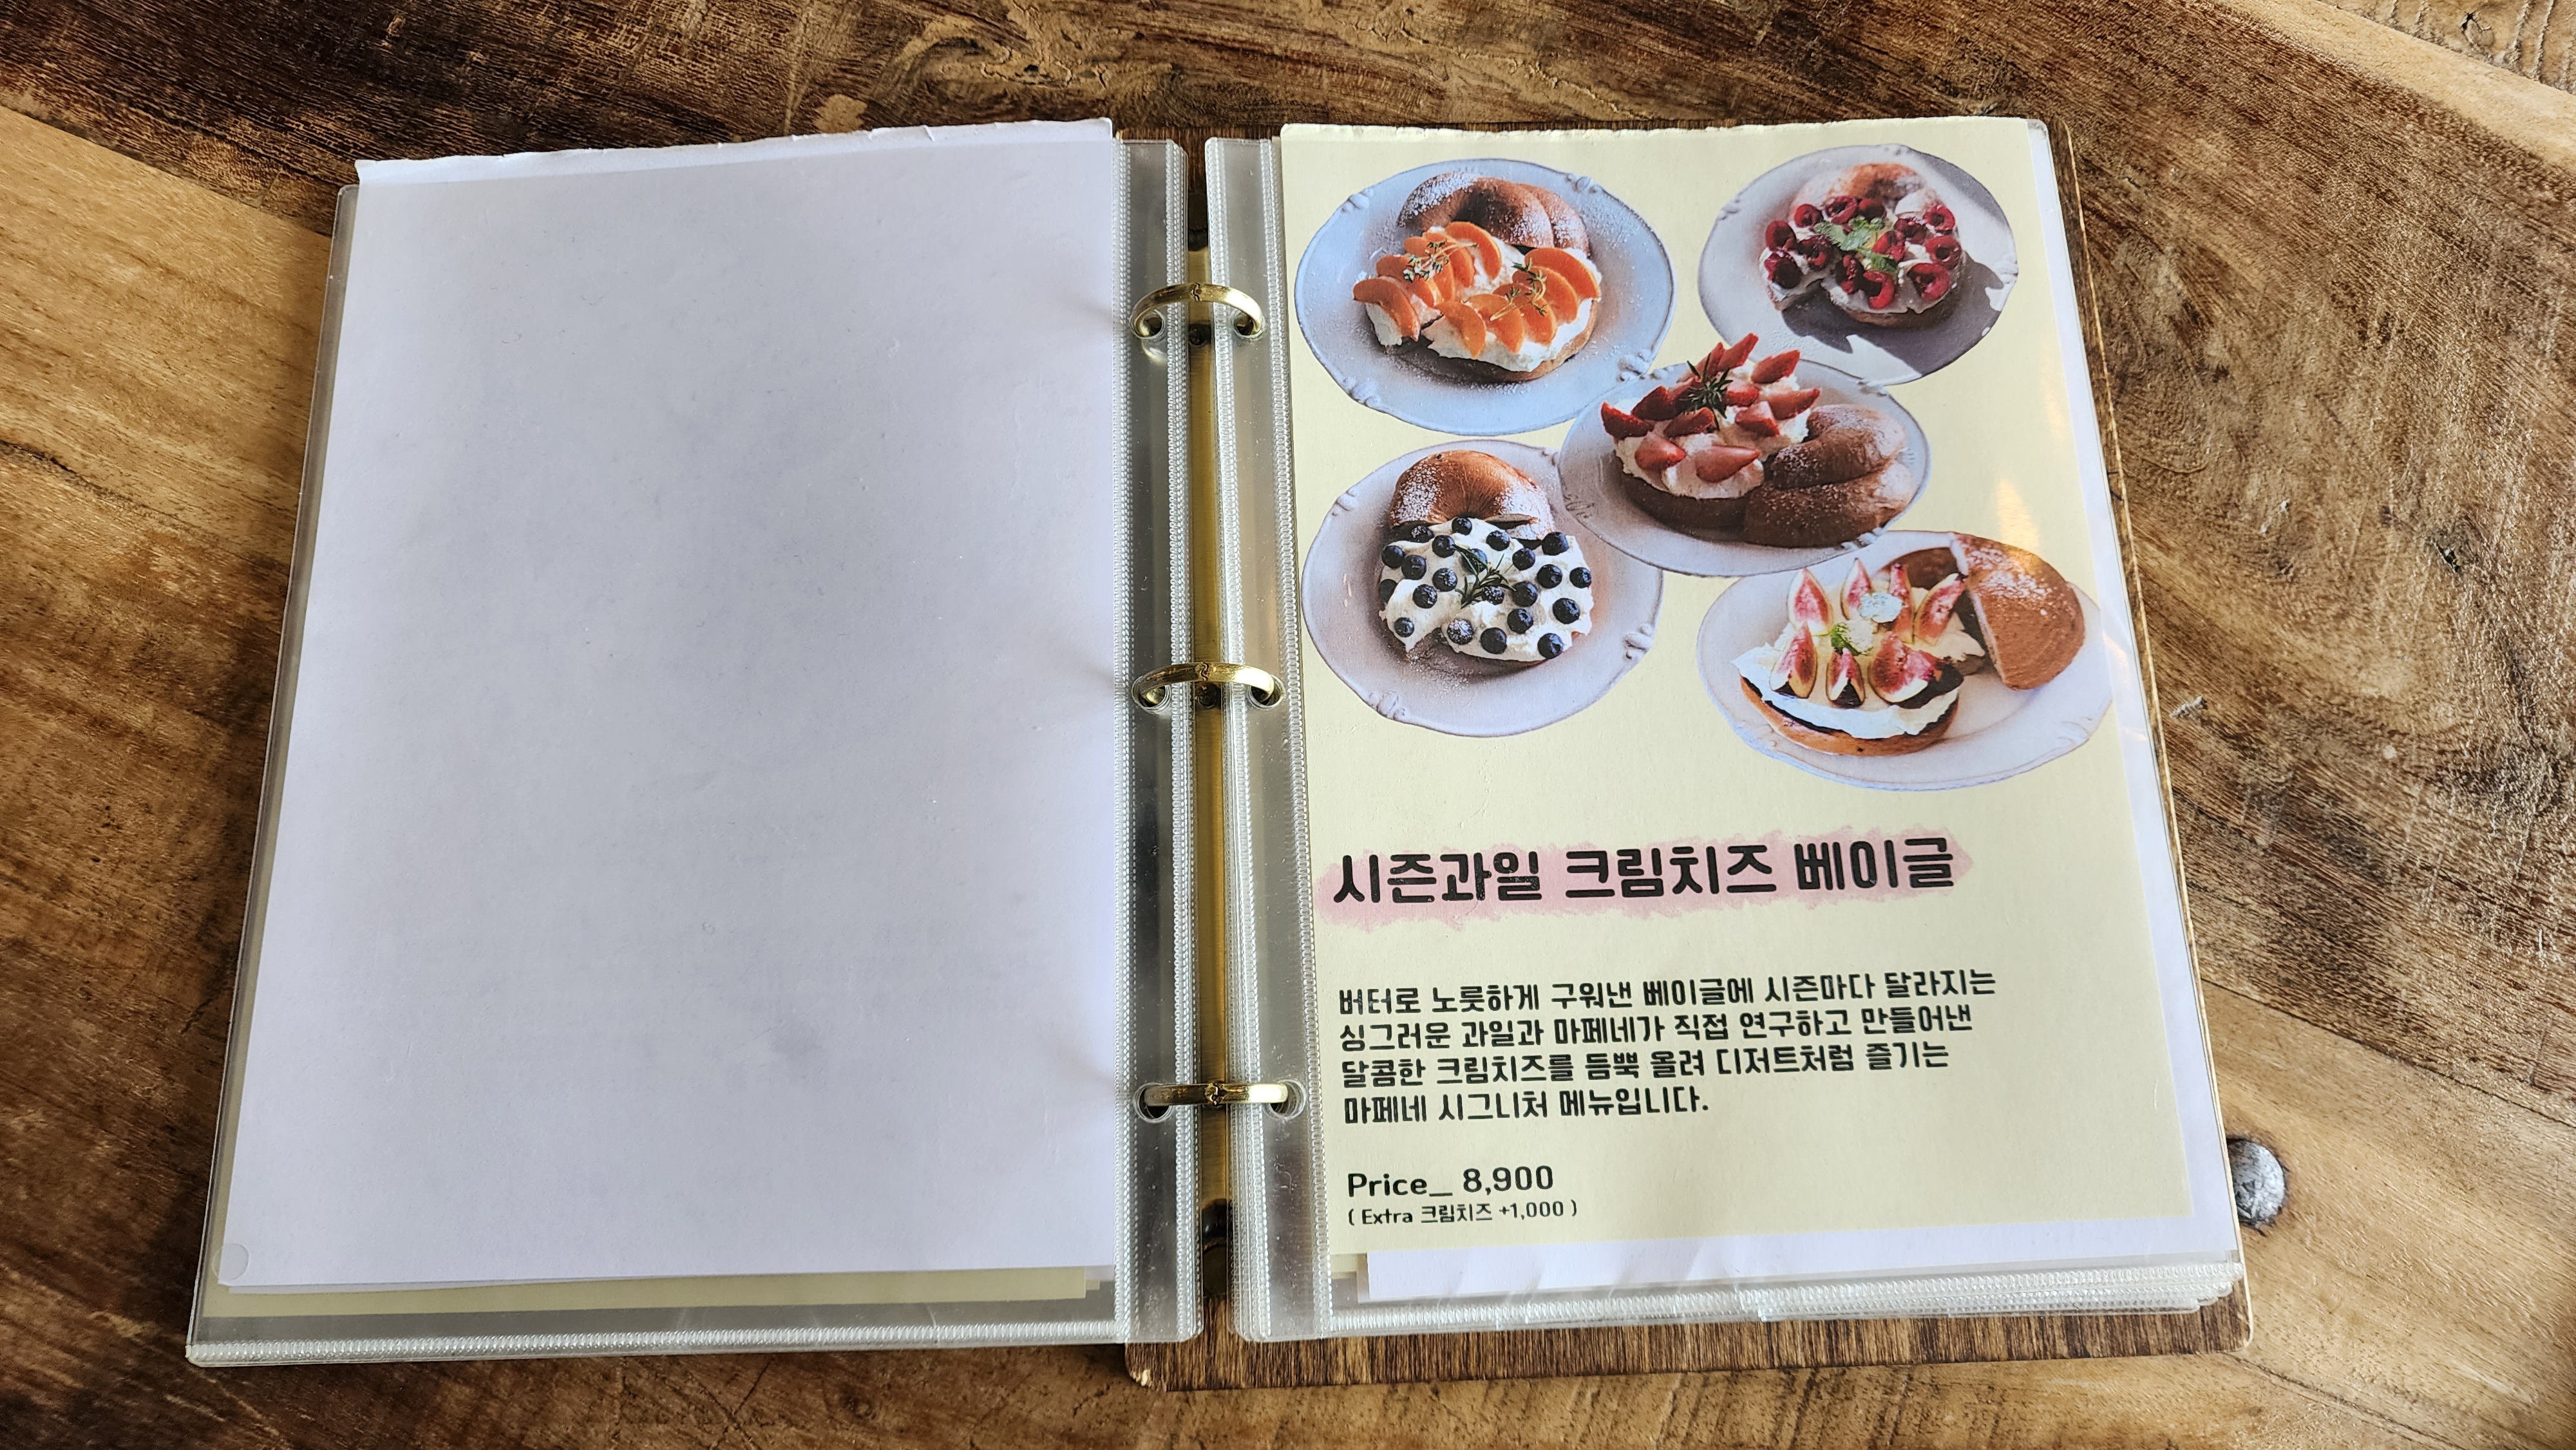 시즌과일 크림치즈 베이글
버터로 노릇하게 구워낸 베이글에 시즌마다 달라지는
싱그러운 과일과 마페네가 직접 연구하고 만들어낸
달콤한 크림치즈를 듬뿍 올려 디저트처럼 즐기는
마페네 시그니처 메뉴입니다.
Price_ 8,900
( Extra 크림치즈 +1,000 )